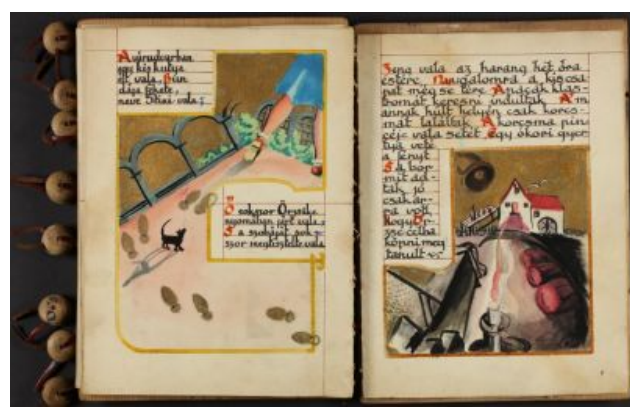 A várudvarban
egy kis kutya
élt vala, Bun
dája fekete,
neve vala;
S sokszor Örzsike
nyomában járt vala
S a szobáját sok
szor megtisztelte vala
Zeng vala az harang hét óra
estére. Nyugalomra a kis csa
pat még se tére. Apácák klas-
tromát keresni indultak. Ám
annak hült helyén csak korcs-
mát találtak. A korcsma pin
céje vala setét, egy ókori gyer
tya veté
a fényt
S a bor
mit ad
tak jó
csak ar-
ra volt,
hogy Ör
zse célba
köpni meg
tanult